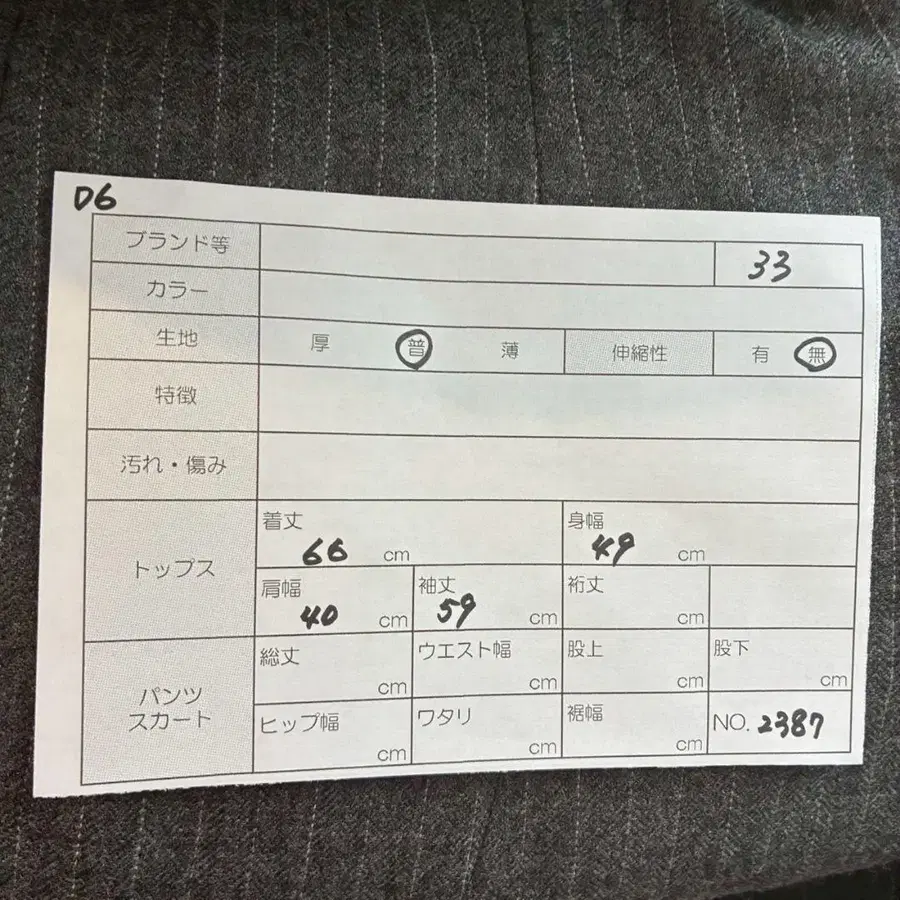 D6
ブランド等 33
カラー
生地 厚 普 薄 伸縮性 有 無
特徴
汚れ・傷み
トップス
着丈 66 cm 身幅 49 cm
肩幅 40 cm 袖丈 59 cm 裄丈 cm
パンツ
スカート
総丈 cm ウエスト幅 cm 股上 cm 股下 cm
ヒップ幅 cm ワタリ cm 裾幅 cm NO. 2387